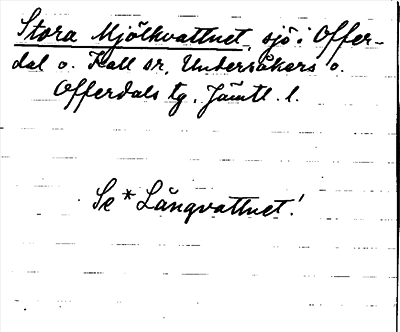 Stora Mjölkvattnet, sjö i Offer-
dal o. Kall sn, Undersåkers o.
Offerdals tg, Jämtl. l.
Se *Långvattnet!